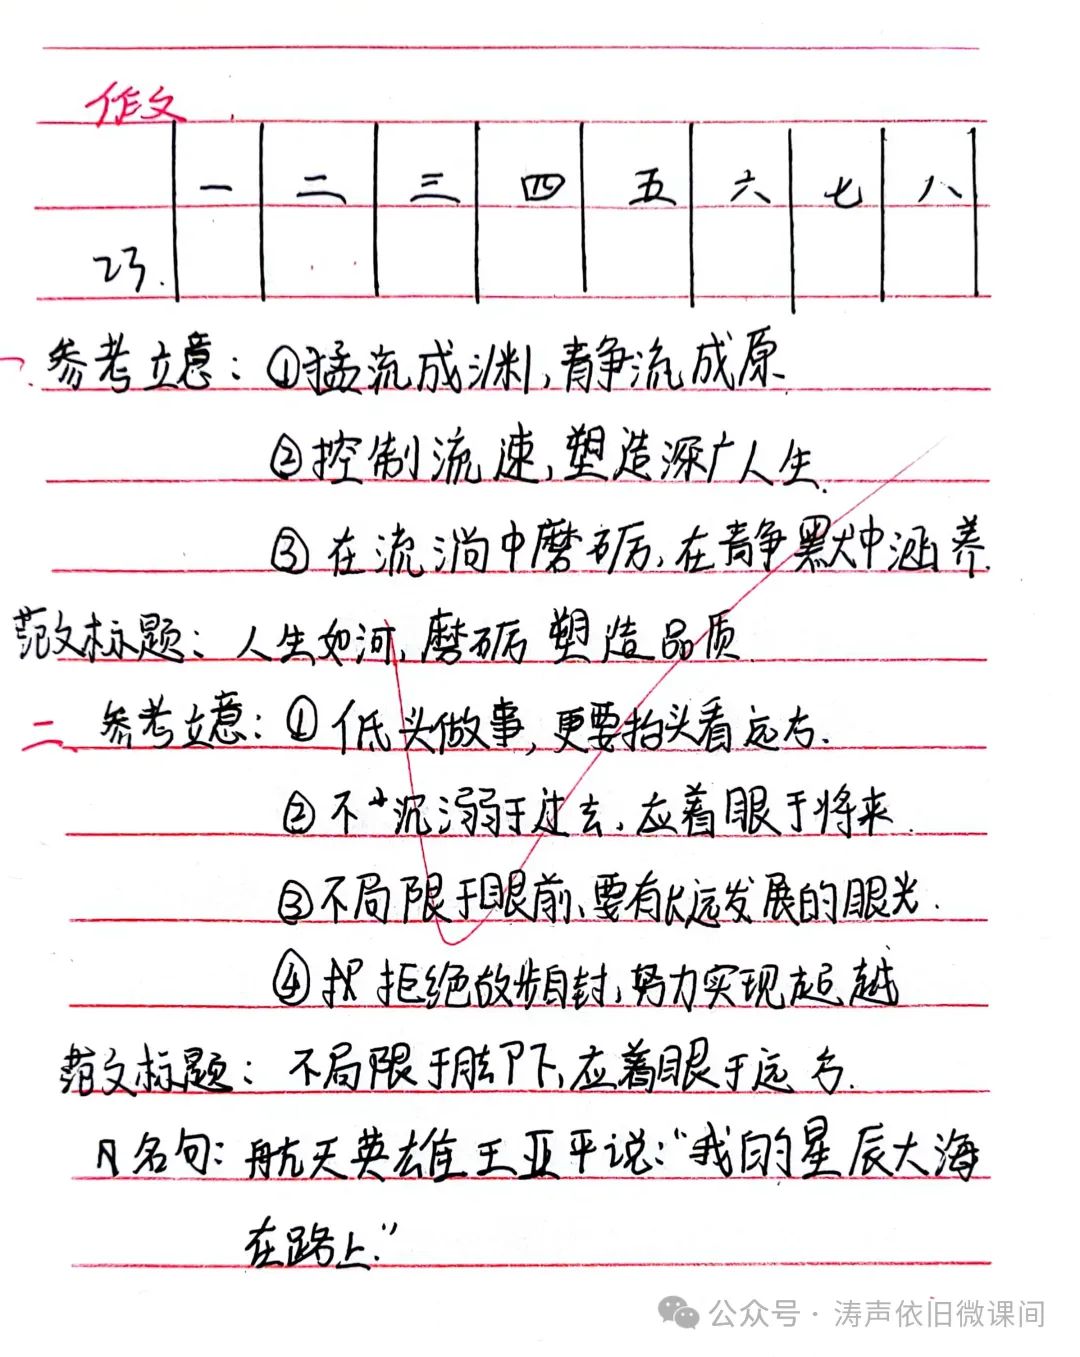 作文
一 二 三 四 五 六 七 八
23.
一. 参考立意：①猛流成渊，静流成原
②控制流速，塑造深广人生.
③在流淌中磨砺，在静默中涵养.
范文标题：人生如河，磨砺塑造品质
二. 参考立意：①低头做事，更要抬头看远方.
②不沉溺于过去，应着眼于将来.
③不局限于眼前，要有长远发展的眼光.
④拒绝故步自封，努力实现超越
范文标题：不局限于脚下，应着眼于远方.
名句：航天英雄王亚平说："我的星辰大海
在路上."
公众号·涛声依旧微课间